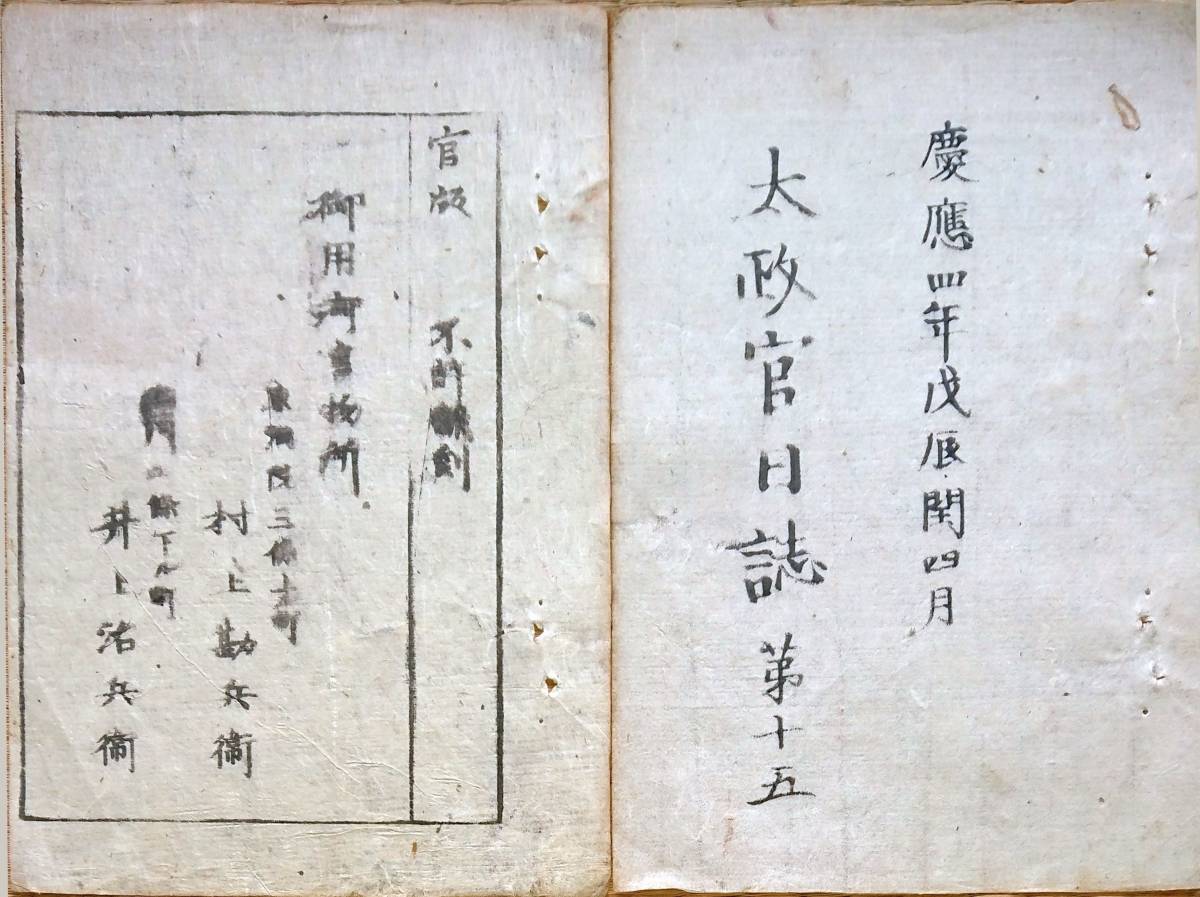 慶應四年戊辰閏四月
太政官日誌 第十五
官版 不許翻刻
御用御書物所
東洞院三條上ル町
村上勘兵衞
二條下ル町
井上治兵衞